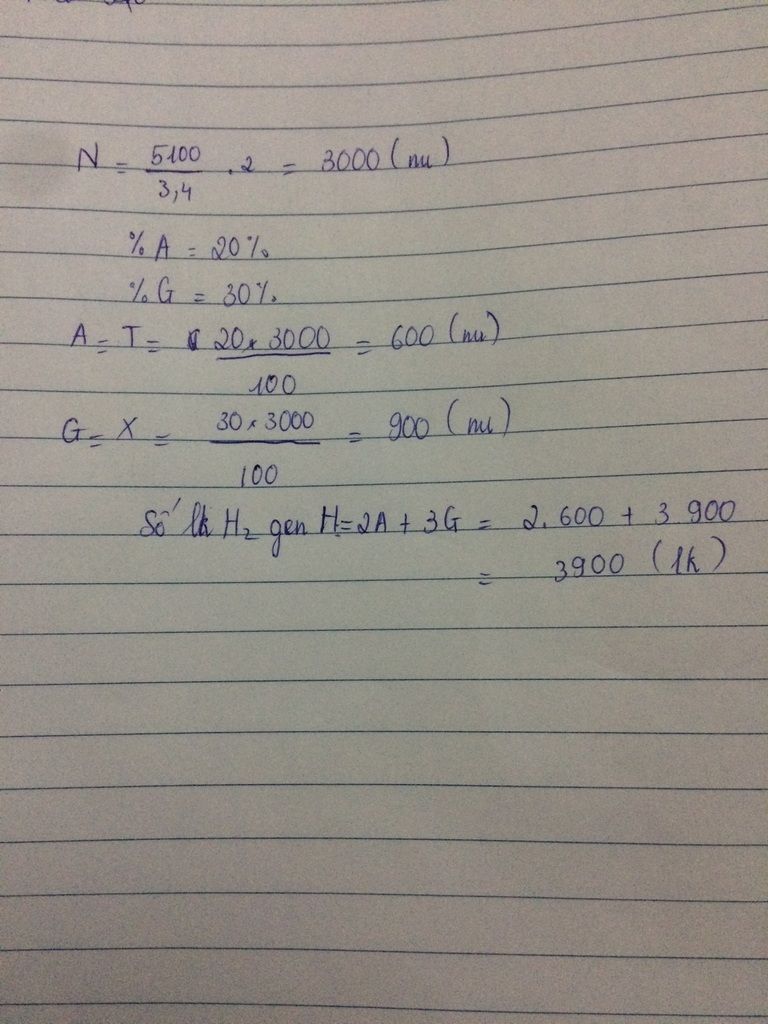 N = 5100/3,4 . 2 = 3000 (nu)
% A = 20%
% G = 30%
A = T = 20 x 3000/100 = 600 (nu)
G = X = 30 x 3000/100 = 900 (nu)
Số lk H₂ gen H = 2A + 3G = 2.600 + 3 900
= 3900 (lk)